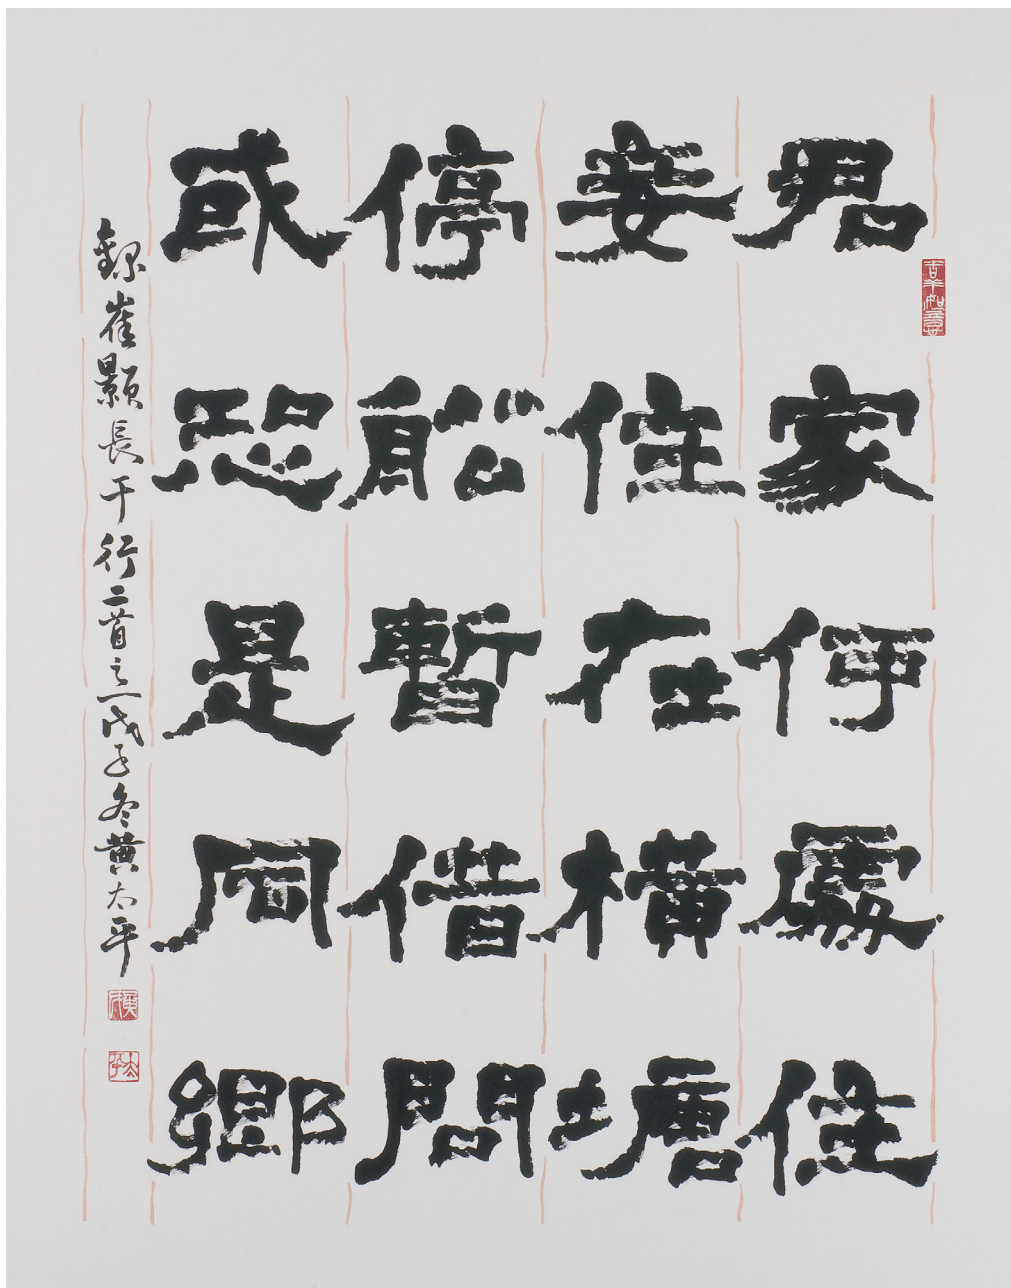 吉羊如意
君家何處住
妾住在橫塘
停舩暫借問
或恐是同鄉
錄崔顥長干行二首之一戊子冬黃太平
太平